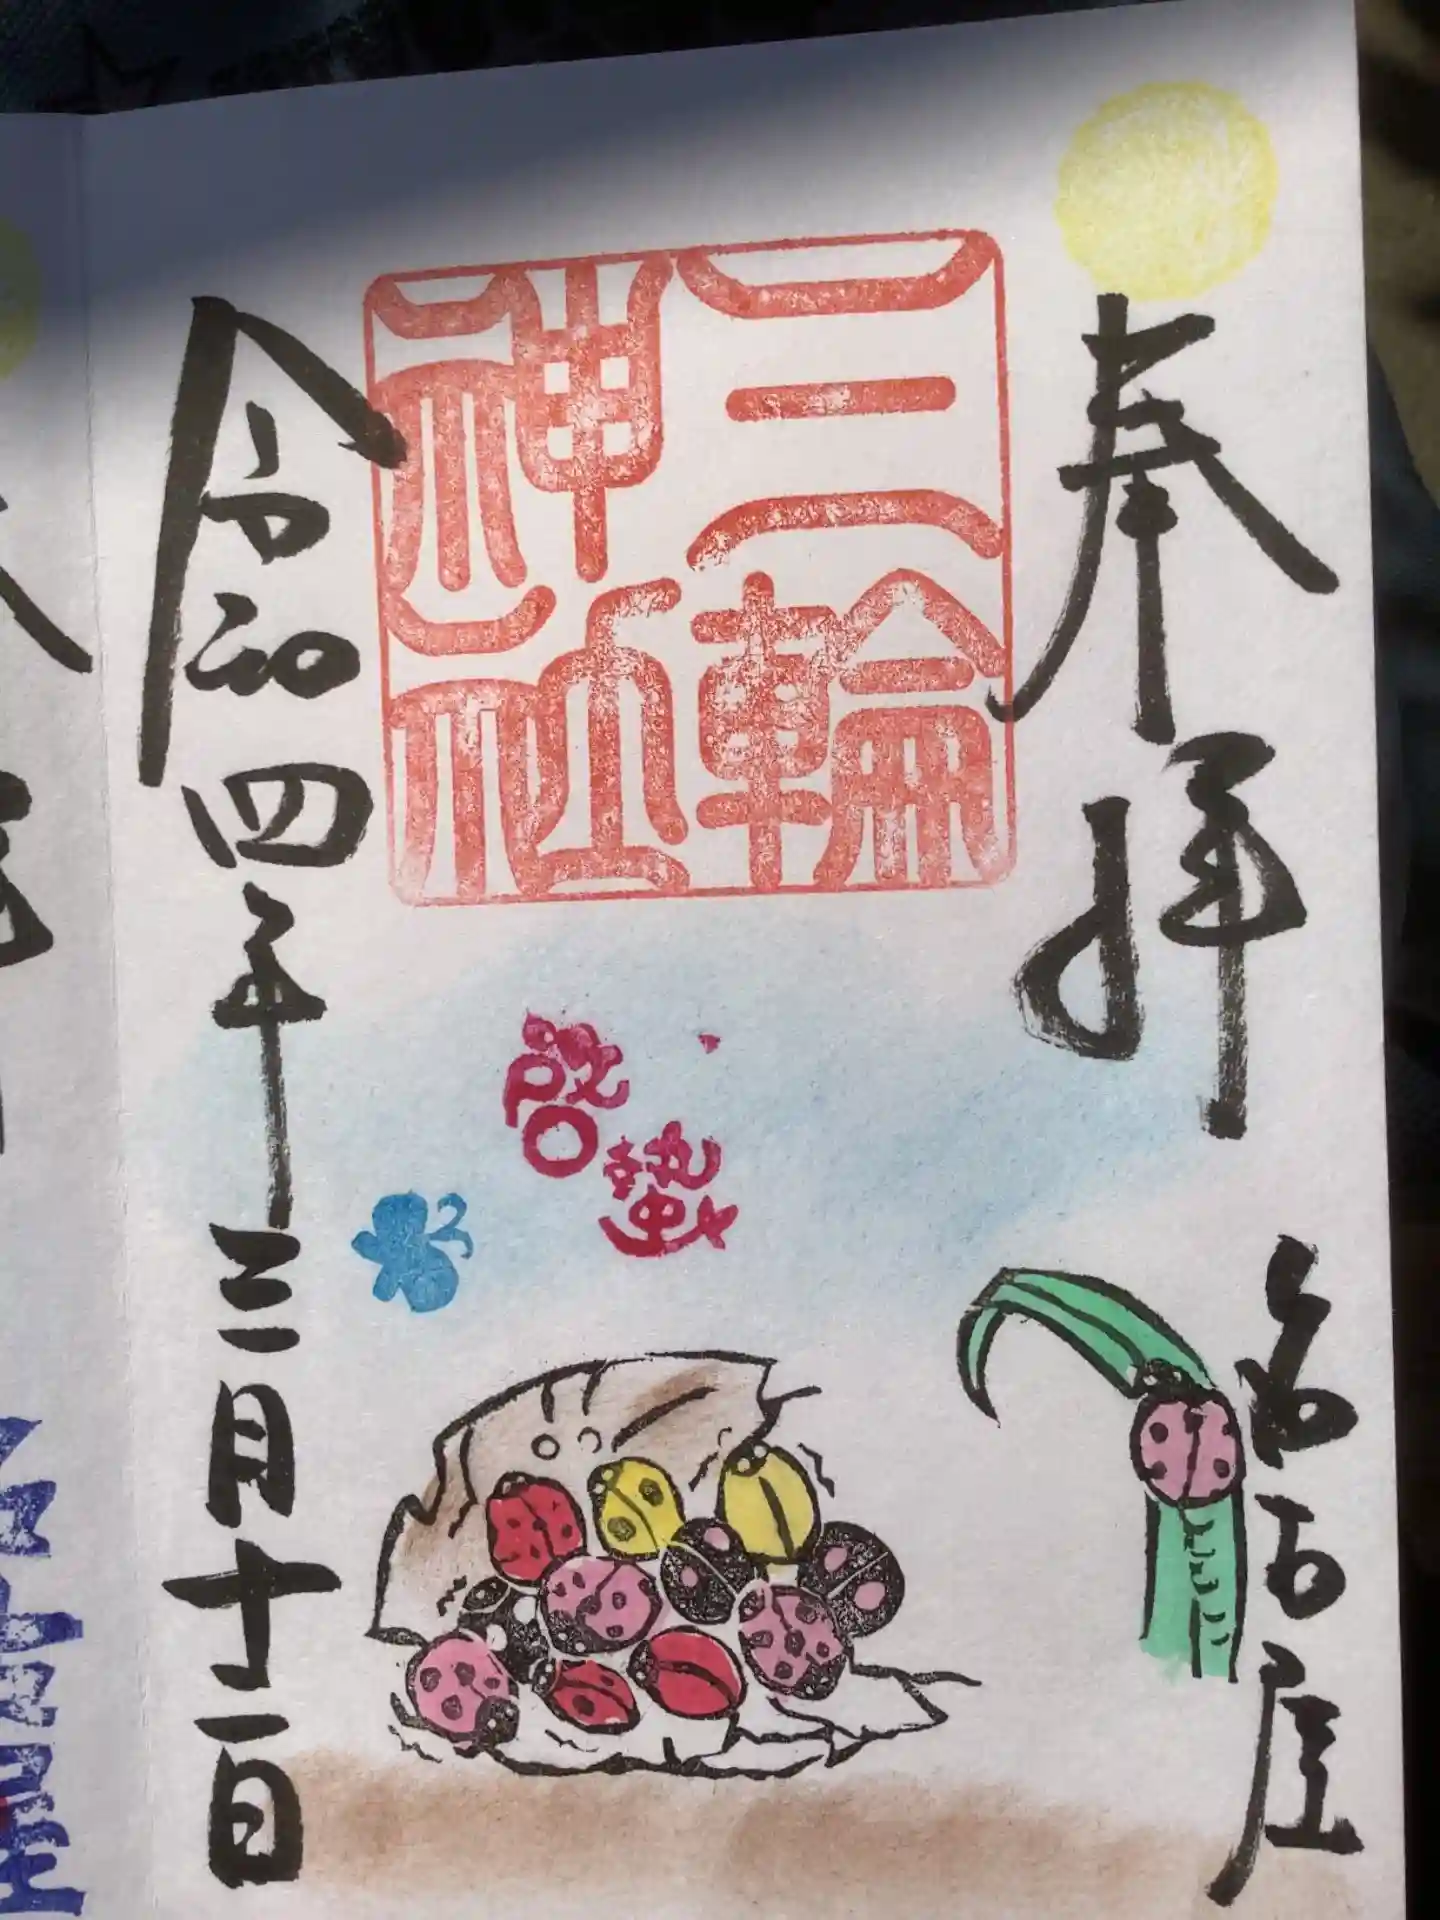 奉拝
名古屋
三輪
神社
啓
蟄
令和四年三月十一日